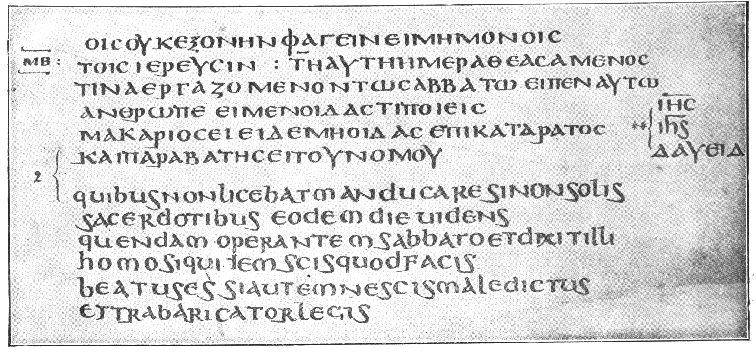 ΟΙC ΟΥΚ ΕΞΟΝ ΗΝ ΦΑΓΕΙΝ ΕΙ ΜΗ ΜΟΝΟΙC
ΜΒ: ΤΟΙC ΙΕΡΕΥCΙΝ : ΤΗ ΑΥΤΗ ΗΜΕΡΑ ΘΕΑCΑΜΕΝΟC
ΤΙΝΑ ΕΡΓΑΖΟΜΕΝΟΝ ΤΩ CΑΒΒΑΤΩ ΕΙΠΕΝ ΑΥΤΩ
ΑΝΘΡΩΠΕ ΕΙ ΜΕΝ ΟΙΔΑC ΤΙ ΠΟΙΕΙC
ΜΑΚΑΡΙΟC ΕΙ ΕΙ ΔΕ ΜΗ ΟΙΔΑC ΕΠΙΚΑΤΑΡΑΤΟC
ΚΑΙ ΠΑΡΑΒΑΤΗC ΕΙ ΤΟΥ ΝΟΜΟΥ
ΙΗC
ihs
ΔΑΥΕΙΔ
2
quibus non licebat manducare si non solis
sacerdotibus eodem die uidens
quendam operantem sabbato et dixit illi
homo siquidem scis quod facis
beatus es si autem nescis maledictus
et trabaricator legis